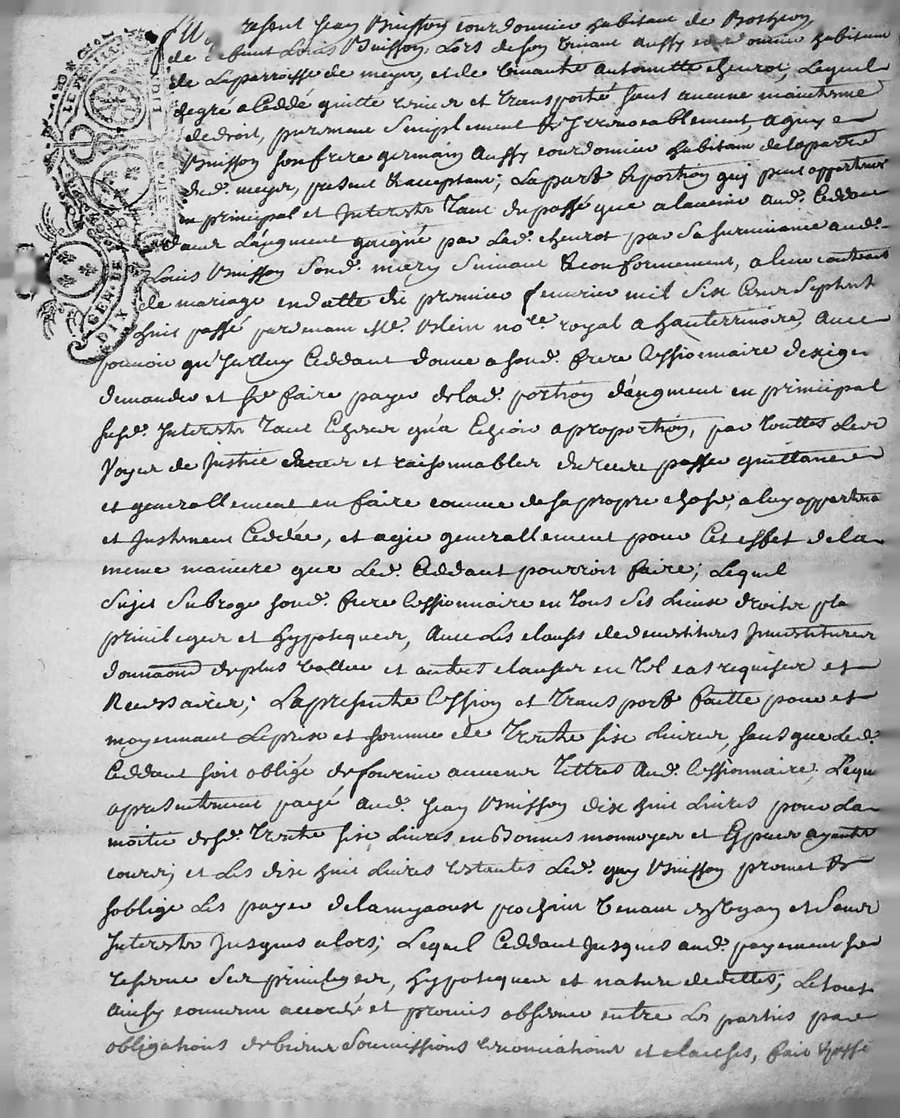 GEN. DE
DIX
resent Jean Buisson courdonnier habitant de
de defunt Louis Buisson, Lors de son vivant aussy cordonnier habitant
de La parroisse de meyre, et de vivante antoinette cheurot, Lequel
de gré a Ceddé quitte remis et transporté sans aucune maintenue
de droit, purement simplement & Irrevocablement, a guy
Buisson son frere germain aussy courdonnier habitant de la parr
dud. meyre, present & acceptant; La part & portion quy peut appartenir
en principal et Interestz Tant du passé que a lavenir aud. Ceddant
dans L'augment gaigné par Lad. cheurot par sa survivance aud.
Louis Buisson sond. mary suivant & conformement, a leur contract
de mariage en datte du premier fevrier mil six Cens septante
huit passé par main Me. Blein nore. royal a hauterivoire, avec
pouvoir qu'Iceluy Ceddant donne a sond. frere Cessionnaire d'exiger
demander et se faire payer de lad. portion d'augment en principal
susd. Interestz Tant Escheus qu'a Eschoir a proportion, par Touttes Les
voyes de Justice deues et raisonnables du receu passer quittances
et generallement en faire comme de sa propre chose, a luy appartena
et Justement Ceddée, et agir generallement pour Cet effet de la
meme maniere que Led. Ceddant pourroit faire; Lequel
Sujet Subroge sond. frere Cessionnaire en Tous ses Lieux droitz pla
privileges et hypoteques, avec Les clauses de devestitures Investitures
donnaōns de plus vallue et autres clauses en Tel cas requises et
Necessaires; La presente Cession et Transport faitte pour et
moyennant Le prix et somme de Trente six Livres, sans que Led.
Ceddant soit obligé de fournir aucuns Tittres aud. Cessionnaire, Lequ
a presentement payé aud. Jean Buisson dix huit Livres pour La
moitié desd. Trente six Livres en Bonnes monnoyes et Especes ayants
cours; et Les dix huit Livres restantes Led. guy Buisson promet &
s'oblige Les payer de la my aoust prochain venant et sans
Interestz Jusques alors; Lequel Ceddant Jusques aud. payement se
reserve Ses privileges, hypoteques et nature de dettes; Le tout
ainsy convenu accordé et promis observer entre Les parties par
obligations de biens Soumissions renonciations et clauses, fait & passé